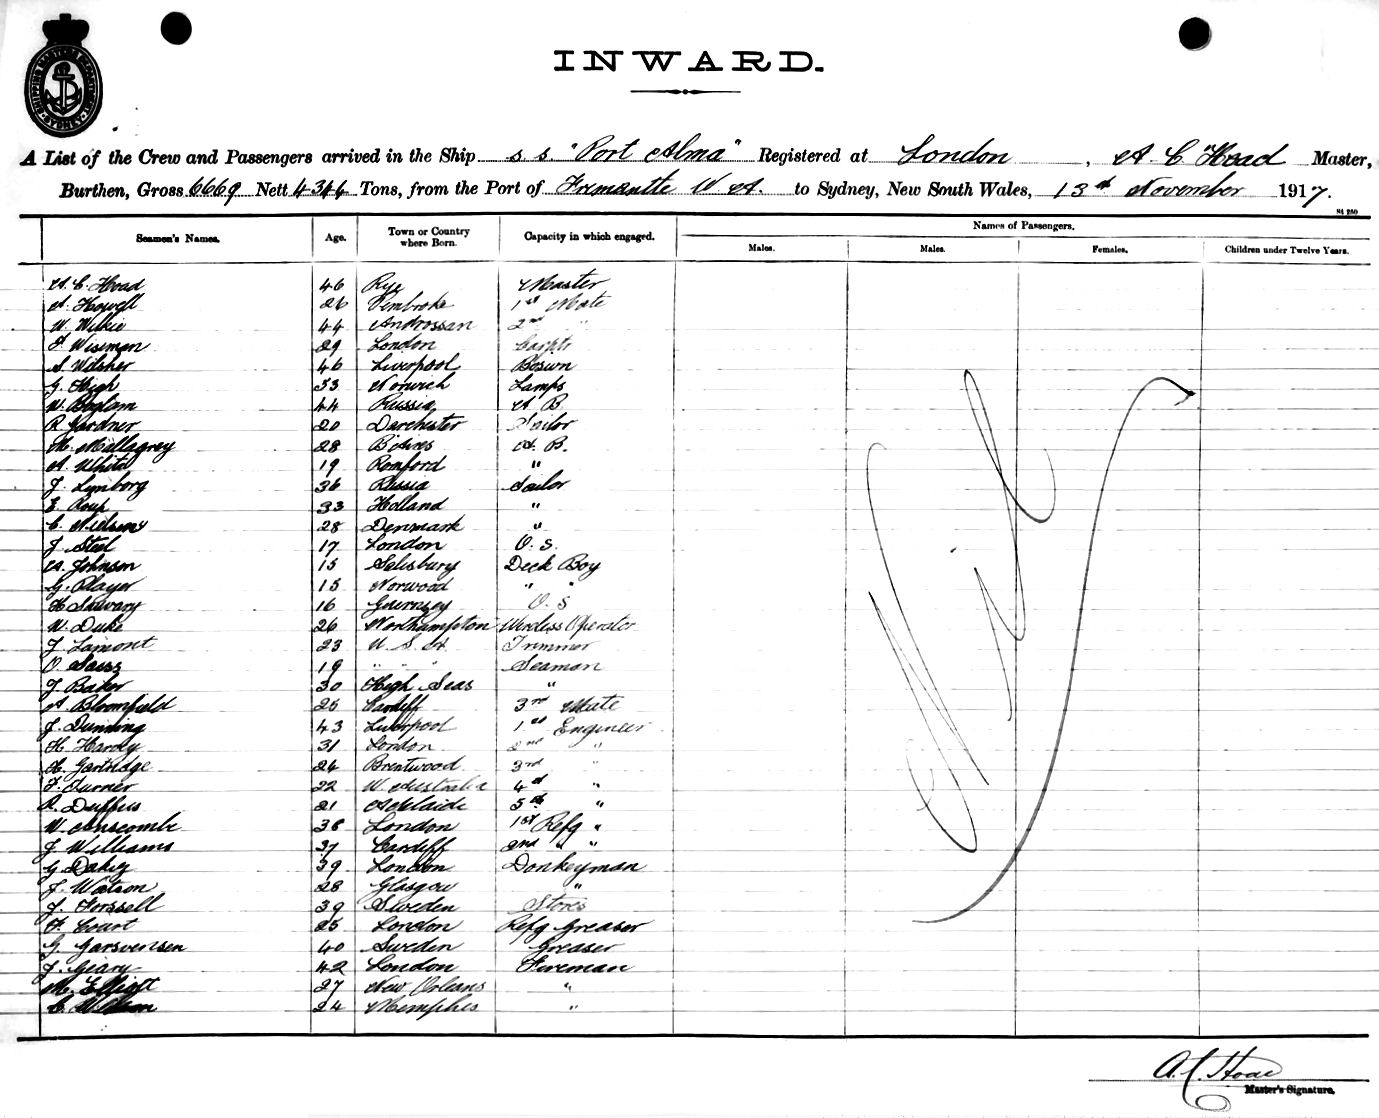 SHIPPING MASTER'S DEPARTMENT SYDNEY
INWARD.
A List of the Crew and Passengers arrived in the Ship s.s. "Port Alma" Registered at London, A C Hoad Master,
Burthen, Gross 6669 Nett Tons, from the Port of Fremantle W A. to Sydney, New South Wales, 13th November 1917.
Seamen's Names. Age. Town or Country where Born. Capacity in which engaged. Names of Passengers.
Males. Males. Females. Children under Twelve Years.
A. C. Hoad 46 Rye Master
A. Howell 26 Pembroke 1st Mate
W. Wilkie 44 Androssan 2nd "
F. Wiseman 29 London Carptr
S. Wilsher 46 Liverpool Boswn
G. High 33 Norwich Lamps
W. 44 Russia A B.
R Gardner 20 Dorchester Sailor
M. 28 B'Aires A. B.
A. White 19 Romford "
J. Lymborg 36 Russia Sailor
E. Roup 33 Holland "
C. 28 Denmark "
J. Steel 17 London O. S.
A. Johnson 15 Salisbury Deck Boy
G. Player 15 Norwood " "
H 16 Guernsey O. S
W. Duke 26 Northampton Wireless Operator
J. Lamont 23 U. S. A. Trimmer
O. 19 " " " Seaman
J. Baker 30 High Seas "
A. Bloomfield 25 Cardiff 3rd Mate
J. Dunning 43 Liverpool 1st Engineer
H. Hardy 31 London 2nd "
H. Gartridge 24 Brentwood 3rd "
F. Turner 22 W. Australia 4th "
R. Duffus 21 Adelaide 5th "
W. Anscombe 38 London 1st Refg "
J. Williams 37 Cardiff 2nd " "
G. 39 London Donkeyman
J. Watson 28 Glasgow "
J. Forssell 39 Sweden Stores
F. Court 25 London Refg Greaser
G. Garsvensen 40 Sweden Greaser
J. Geary 42 London Fireman
M. Elliott 27 New Orleans "
C. 24 Memphis "
Nil
A. C. Hoad
Master's Signature.